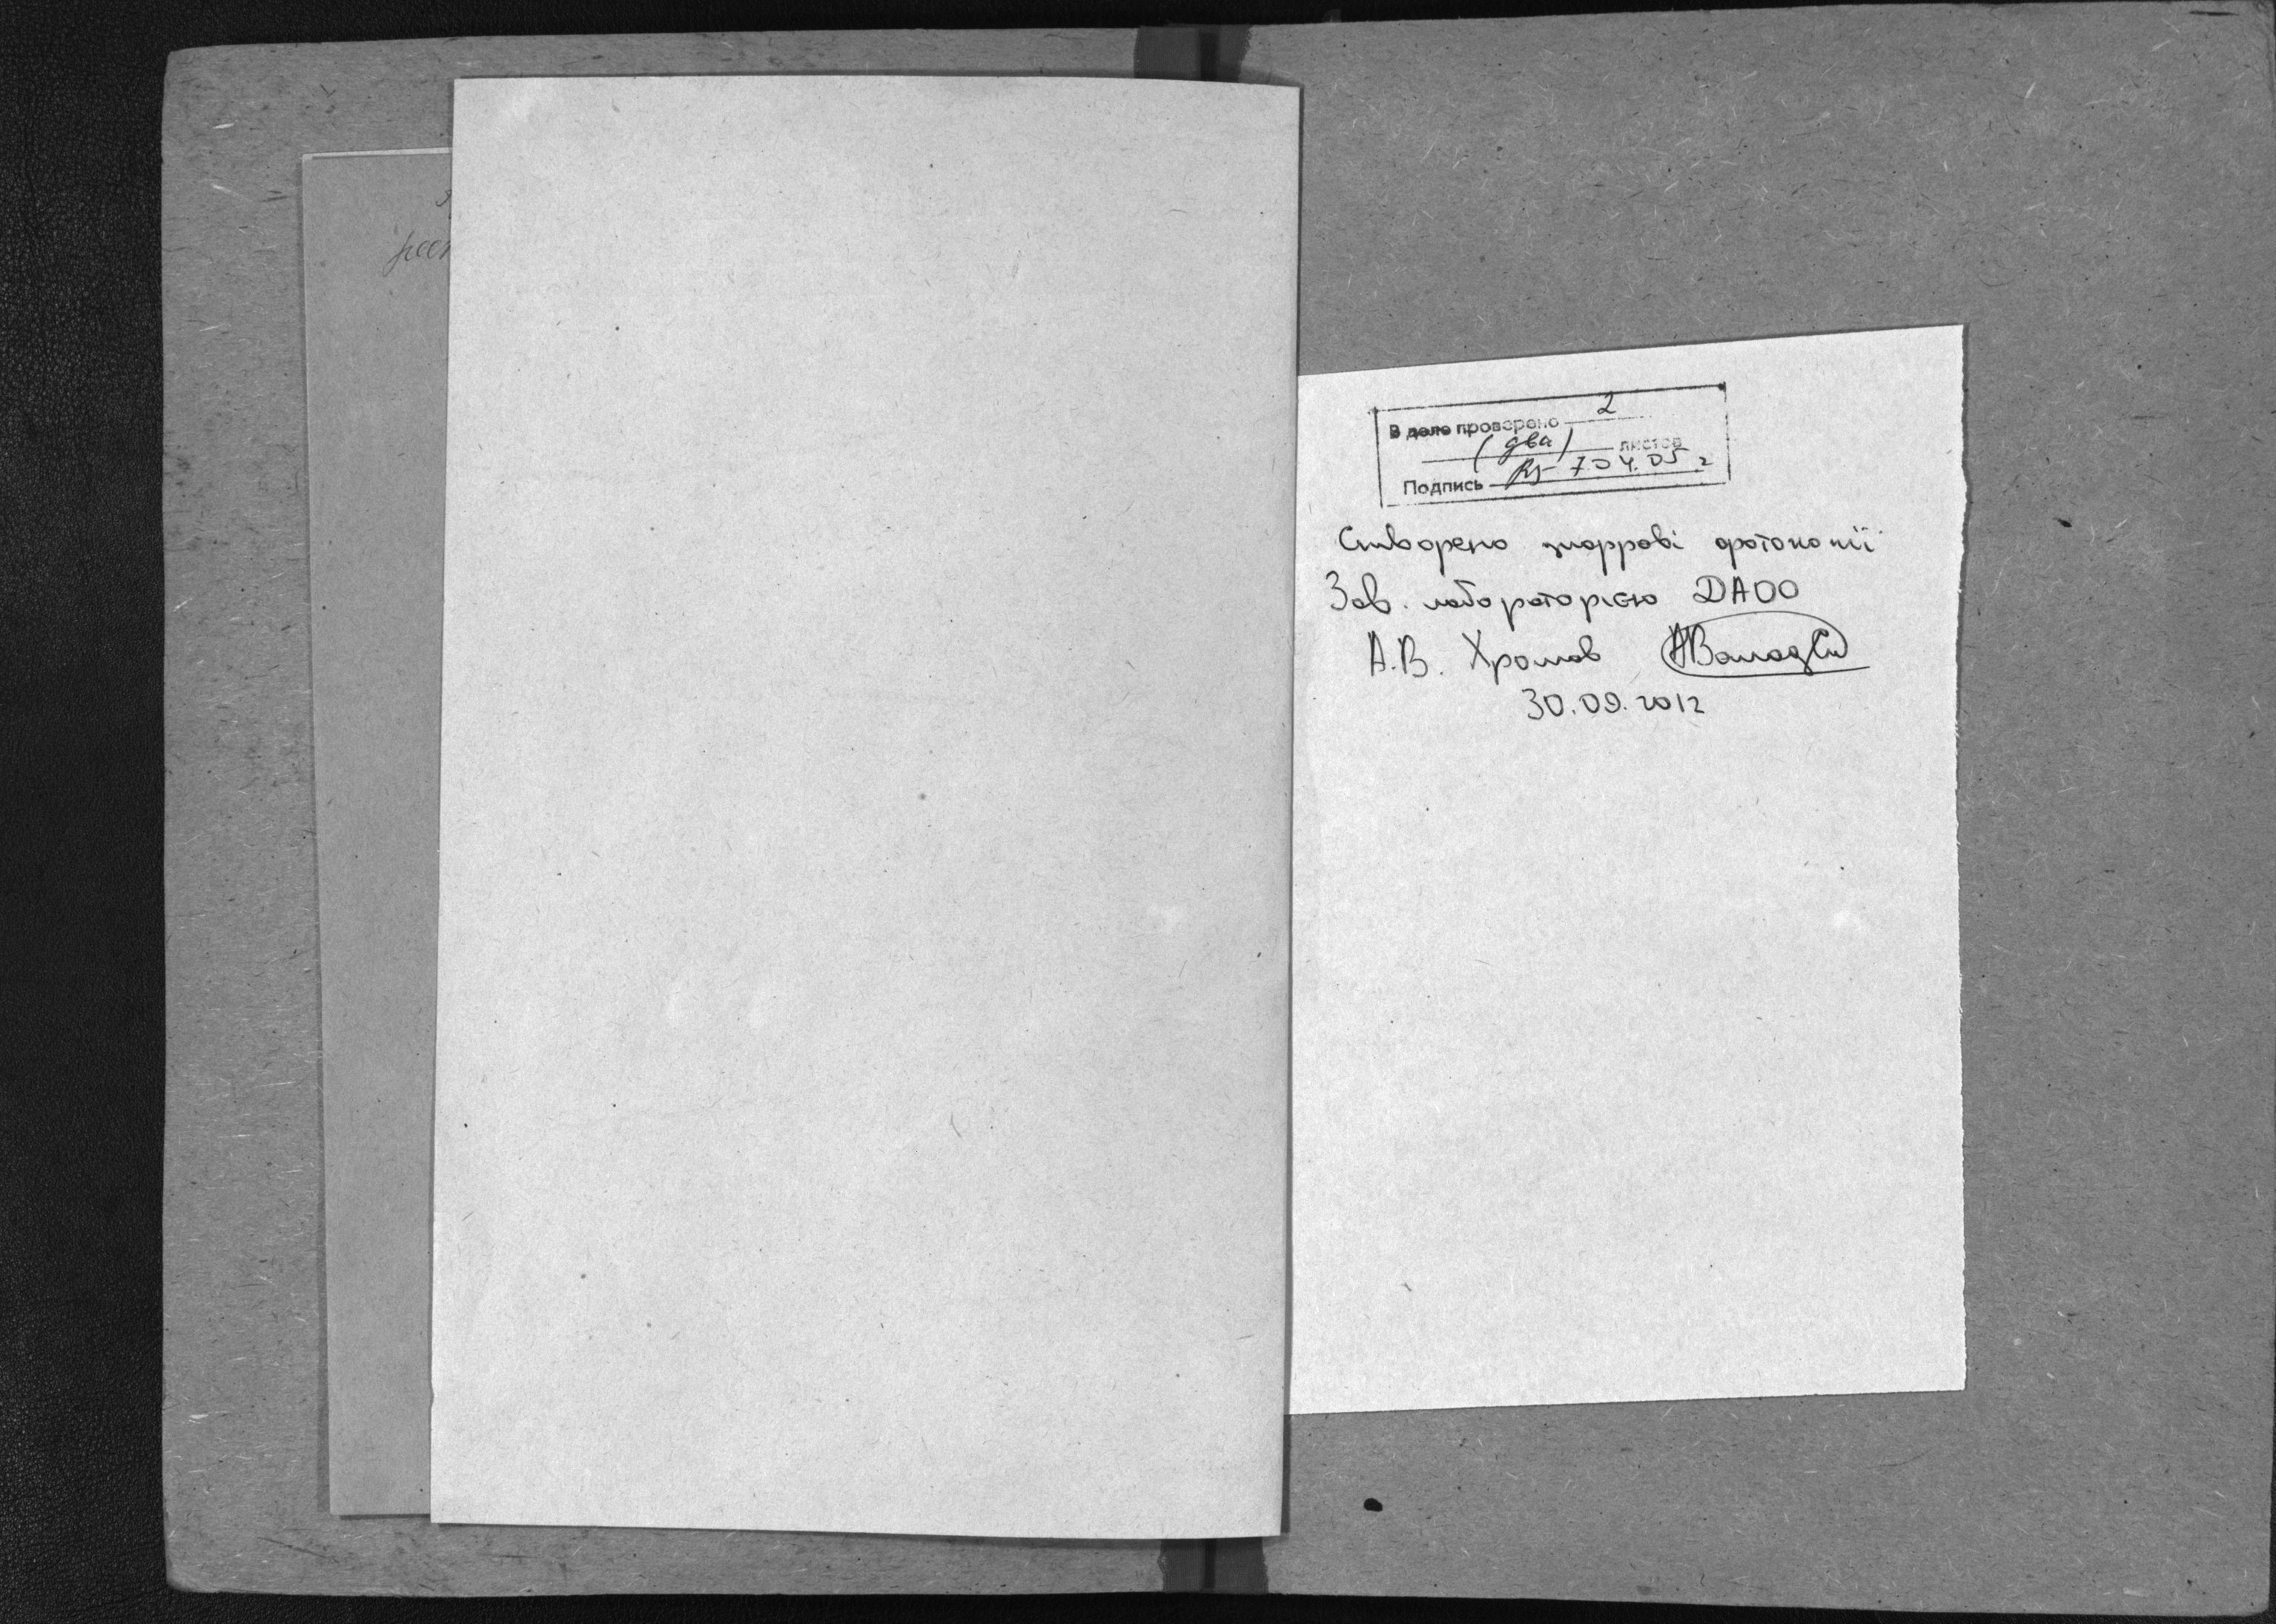 В деле проверено 2
(два) листов
Подпись 7.04.05 г
Створено цифрові фотокопії
Зав. лабораторією ДАОО
А.В. Хромов
30.09.2012